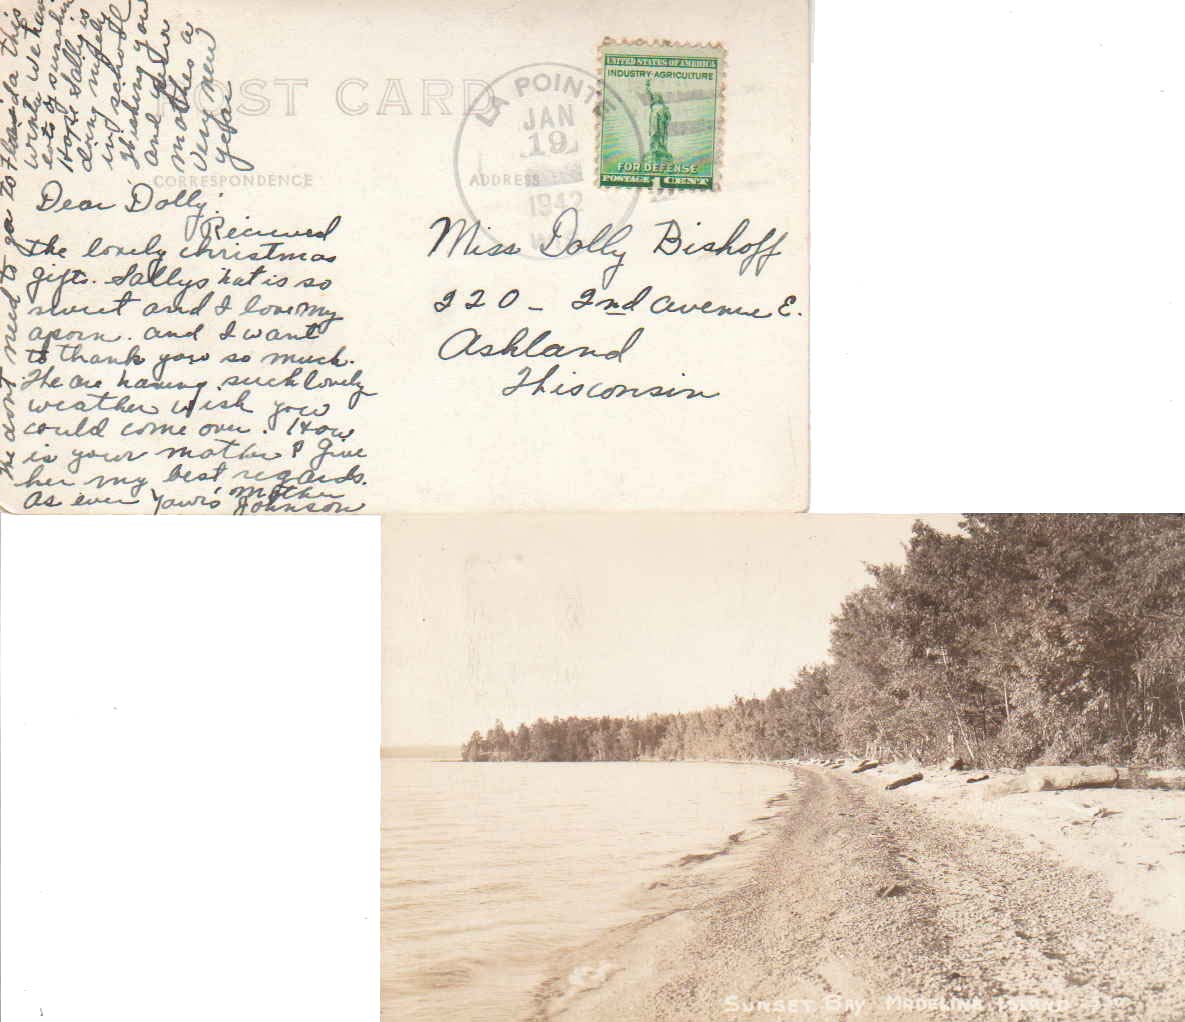 POST CARD
CORRESPONDENCE
ADDRESS
LA POINTE
JAN
19
1942
WIS
UNITED STATES OF AMERICA
INDUSTRY-AGRICULTURE
FOR DEFENSE
POSTAGE 1 CENT
Dear Dolly:
Recieved
the lovely christmas
gifts. Sallys hat is so
sweet and I love my
aporn. and I want
to thank you so much.
We are having such lovely
weather wish you
could come over. How
is your mother? Give
her my best regards.
As ever Yours Mother
Johnson
We dont need to go to Florida this
winter we have
lots of sunshine
Hope Sally is
doing nicely
in school
Wishing you
and your
mother a
very new
year
Miss Dolly Bishoff
220 - 2nd avenue E.
Ashland
Wisconsin
SUNSET BAY MADELINE ISLAND